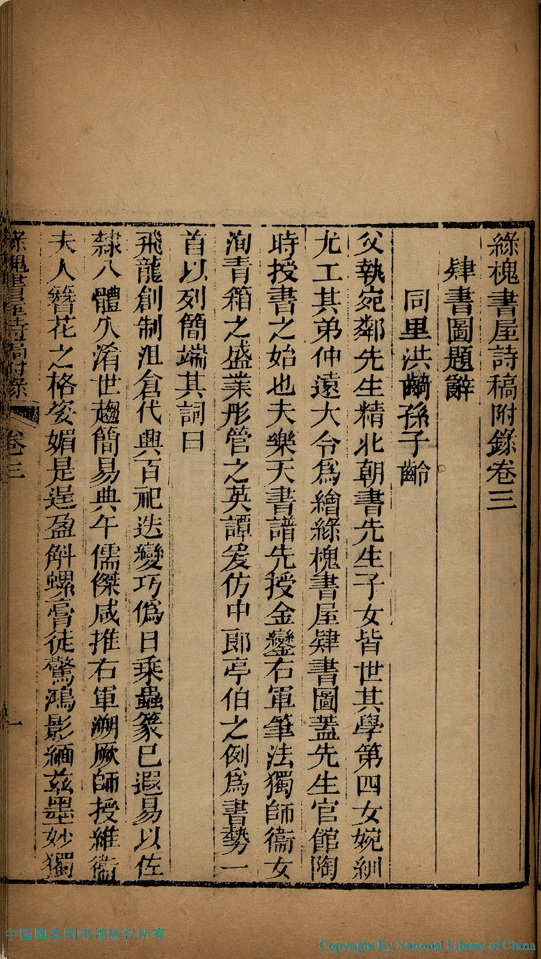 綠槐書屋詩稿附錄卷三
肄書圖題辭
同里洪齮孫子齡
父執宛鄰先生精北朝書先生子女皆世其學第四女婉紃
尤工其弟仲遠大令爲繪綠槐書屋肄書圖蓋先生官館陶
時授書之始也夫樂天書譜先授金鑾右軍筆法獨師衞女
洵青箱之盛業彤管之英譚爰仿中郎亭伯之例爲書勢一
首以列簡端其詞曰
飛龍創制沮倉代興百祀迭變巧僞日乘蟲篆已遐易以佐
隸八體久淆世趨簡易典午儒傑咸推右軍溯厥師授維衞
夫人簪花之格姿媚是逞盈斛螺膏徒驚鴻影緬茲墨妙獨
綠槐書屋詩稿附錄 卷三 一
中国国家图书馆版权所有
Copyright By National Library of China